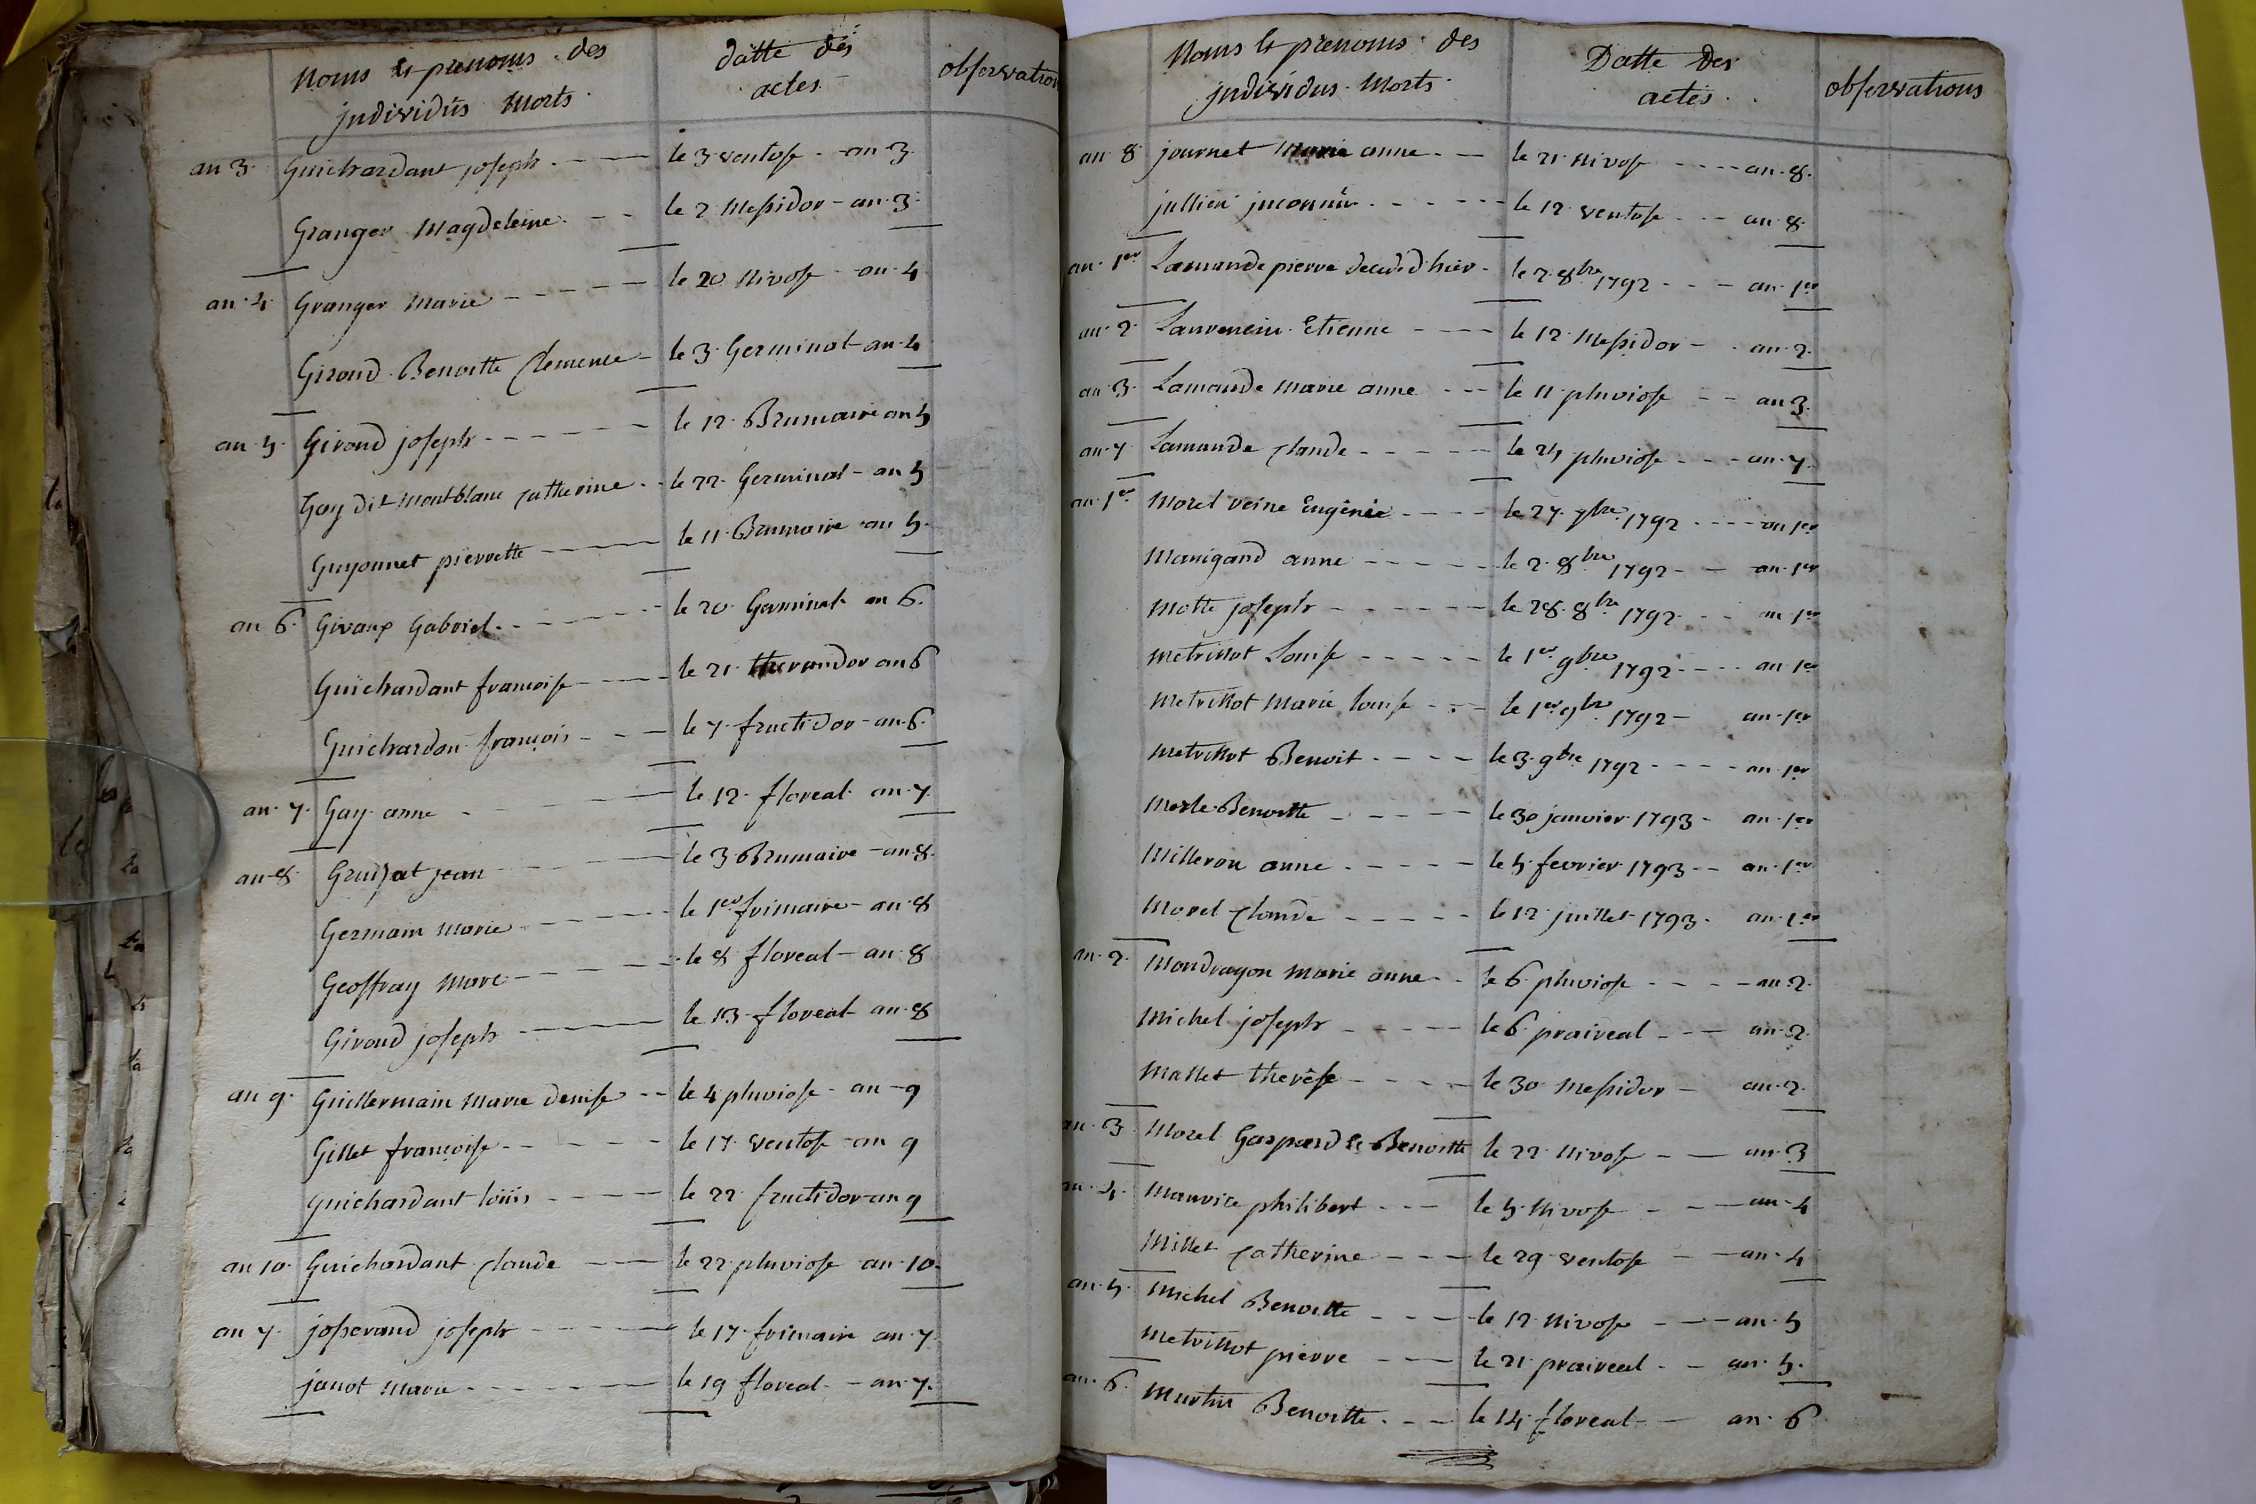 Noms & prenoms des
datte des
observation
individus Morts
actes
an 3. Guichardant joseph - - le 3 ventose - an 3.
Granger Magdeleine - - le 2 Messidor - an 3.
an 4. Granger Marie - - - le 20 Nivose - an 4
Giroud Benoitte Clemence - le 3 Germinal an 4
an 5. Giroud joseph - - - le 12 Brumaire an 5
Gay dit Montblanc Catherine - le 22 Germinal - an 5
Guyonnet pierrette - - - le 11 Brumaire an 5.
an 6. Givaux Gabriel - - - le 20 Germinal an 6.
Guichardant francoise - - - le 21 thermidor an 6
Guichardon francois - - - le 7 fructidor - an 6.
an 7. Gay anne - - - le 12 floreal an 7.
an 8. Gruizat jean - - - le 3 Brumaire - an 8.
Germain Marie - - - le 1er frimaire - an 8
Geoffray Marc - - - le 8 floreal - an 8
Giroud joseph - - - le 13 floreal an 8
an 9. Guillermain Marie denise - - le 4 pluviose - an - 9
Gillet francoise - - - le 17 ventose - an 9
Guichardant loüis - - - le 22 fructidor an 9
an 10. Guichardant Claude - - le 22 pluviose an 10.
an 7. josserand joseph - - - le 17 frimaire an 7.
janot Marie - - - le 19 floreal - an 7.
Noms & prenoms des
Datte des
observations
individus Morts
actes
an 8 journet Marie anne - - le 21 Nivose - - - an 8.
jullien inconnu - - - le 12 ventose - - - an 8.
an 1er Lamande pierre decedé d'hier - le 2 8bre 1792 - - - an 1er
an 2. Laurencin Etienne - - - le 12 Messidor - an 2.
an 3. Lamande Marie anne - - - le 11 pluviose - - an 3.
an 7. Lamande Claude - - - le 24 pluviose - - - an 7.
an 1er Morel veine Eugénie - - - le 27 7bre 1792 - - - an 1er
Manigand anne - - - le 2 8bre 1792 - - an 1er
Motte joseph - - - le 28 8bre 1792 - - an 1er
Metrillot Louise - - - le 1er 9bre 1792 - - - an 1er
Metrillot Marie louise - - - le 1er 9bre 1792 - an 1er
Metrillot Benoit - - - le 3 9bre 1792 - - - an 1er
Merle Benoitte - - - le 30 janvier 1793 - an 1er
Milleron anne - - - le 5 fevrier 1793 - - an 1er
Morel Claude - - - le 12 juillet 1793 - an 1er
an 2. Mondragon Marie anne - - le 6 pluviose - - - an 2.
Michel joseph - - - le 6 praireal - - - an 2.
Mallet therèse - - - le 30 Messidor - an 2.
an 3. Morel Gaspard & Benoitte le 22 Nivose - - an 3
an 4. Maurice philibert - - - le 5 Nivose - - - an 4
Millet Catherine - - - le 29 ventose - - an 4
an 5. Michel Benoitte - - - le 12 Nivose - - - an 5
Metrillot pierre - - - le 21 praireal - - an 5.
an 6. Martin Benoitte - - - le 14 floreal - - an 6